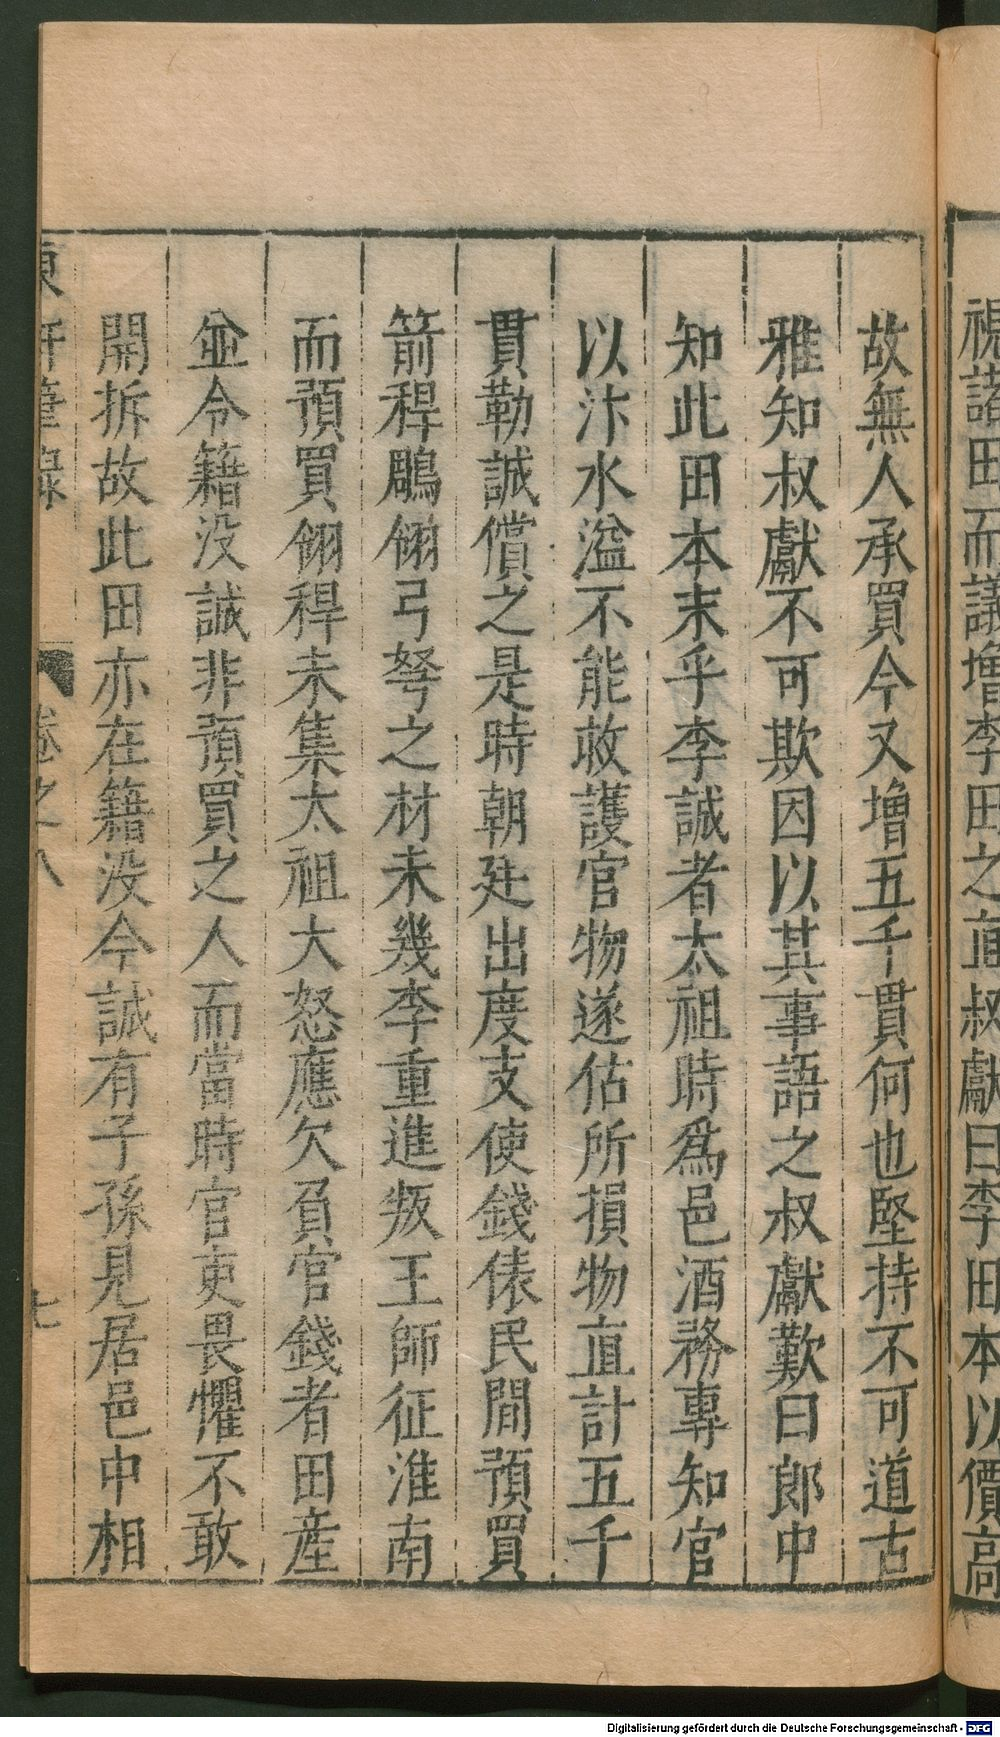 視諸田而議增李田之直叔獻曰李田本以價高
故無人承買今又增五千貫何也堅持不可道古
雅知叔獻不可欺因以其事語之叔獻歎曰郎中
知此田本末乎李誠者太祖時爲邑酒務專知官
以汴水溢不能救護官物遂估所損物直計五千
貫勒誠償之是時朝廷出度支使錢俵民間預買
箭稈鵰翎弓弩之材未幾李重進叛王師征淮南
而預買翎稈未集太祖大怒應欠負官錢者田產
並令籍没誠非預買之人而當時官吏畏懼不敢
開拆故此田亦在籍没今誠有子孫見居邑中相
東軒筆錄 卷之八 七
Digitalisierung gefördert durch die Deutsche Forschungsgemeinschaft - DFG